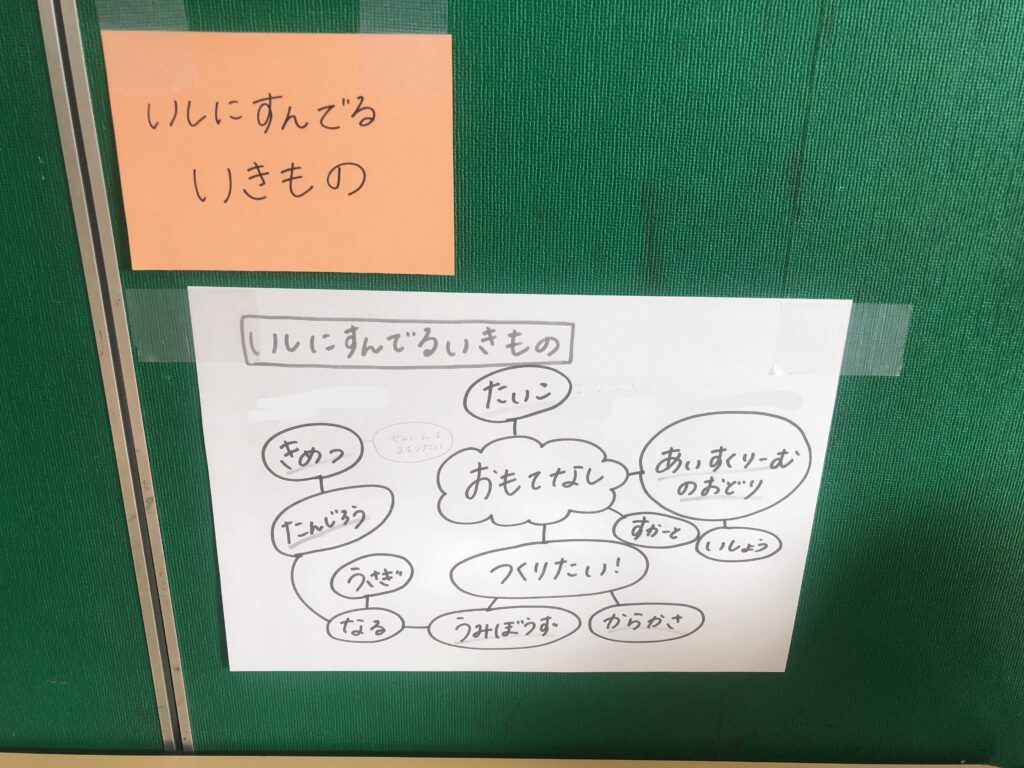 いしにすんでる
いきもの
いしにすんでるいきもの
たいこ
きめつ
おもてなし
あいすくりーむ
のおどり
たんじろう
すかーと
いしょう
うさぎ
つくりたい!
なる
うみぼうず
からかさ